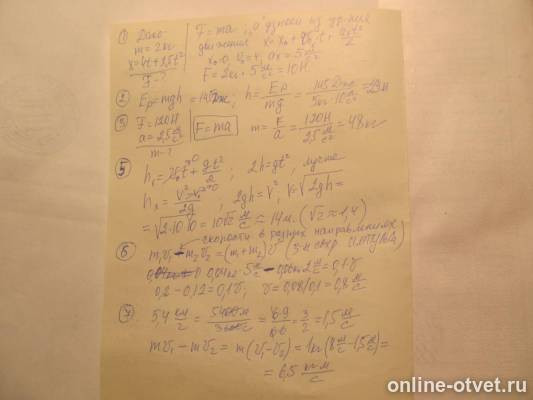 ① Дано:
m = 2кг
x = 4t + 2,5t²
F - ?
F = ma ; "a" узнаем из ур-ния
движения x = x₀ + v₀t + axt²/2
x₀ = 0, v₀ = 4, ax = 5 м/с²
F = 2кг · 5 м/с² = 10Н
② Ep = mgh = 145Дж ; h = Ep/mg = 145Дж/5кг·10 м/с² = 2,9м
③ F = 120Н
a = 2,5 м/с²
m - ?
F = ma
m = F/a = 120Н/2,5 м/с² = 48кг
⑤ h₁ = v₀t + gt²/2 ; 2h = gt², лучше
h₁ = v² - v₀²/2g ; 2gh = v², v = √2gh =
= √2·10·10 = 10√2 м/с ≈ 14м. (√2 ≈ 1,4)
скорости в разных направлениях
⑥ m₁v₁ - m₂v₂ = (m₁ + m₂)v (з-н сохр. импульса)
0,04кг · 5 м/с - 0,06кг · 2 м/с = 0,1·v
0,2 - 0,12 = 0,1v ; v = 0,08/0,1 = 0,8 м/с
⑦ 5,4 км/ч = 5400м/3600с = 3/2 = 1,5 м/с
mv₁ - mv₂ = m(v₁ - v₂) = 1кг(8 м/с - 1,5 м/с) =
= 6,5 кг·м/с
online-otvet.ru